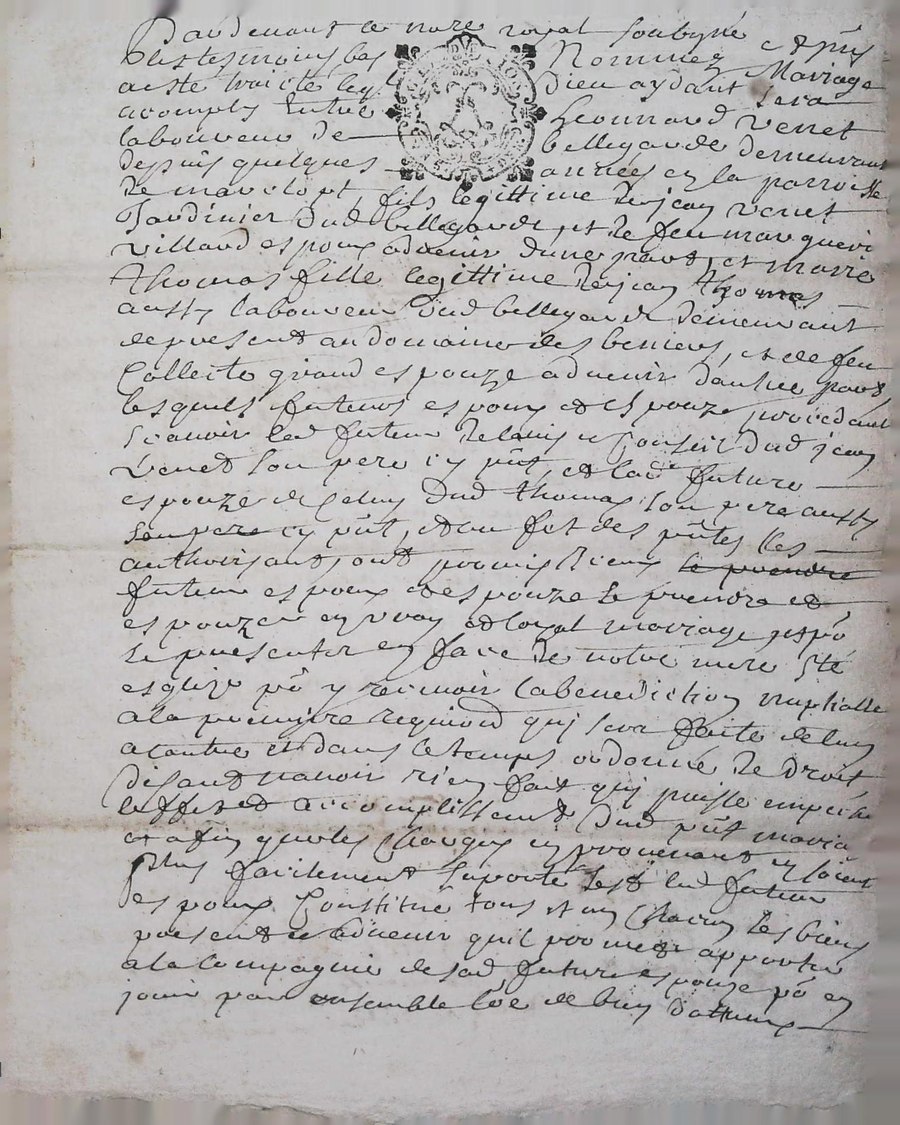 Pardevant le no.re royal soubsigné et pñs
les tesmoins bas Nommez
a este traicté leq.l Dieu aydant Mariage sera
acomply Entre Leonnard Venet
laboureur de bellegarde demeurant
depuis quelques années en la parroisse
de , fils legittime de jean Venet
Jardinier dud bellegarde, et de feu margueri
Villaud espoux advenir dune part, et Marie
thomas fille legittime de jean thomas
aussy laboureur dud bellegarde demeurant
de present au domaine des beniers, et de feu
Collecte giraud espouze advenir dautre part
lesquels futurs espoux et espouze procedant
Scavoir led futeur de ladvis et Conseil dud jean
Venet son pere cy pñt, et lad future
espouze de Celuy dud thomas son pere aussy
son pere cy pñt, et au fet des pñtes les
authorisant, ont promis lesd le prendre
futeur espoux et espouze se prendre et
espouzer en vray et loyal mariage, et po
se presenter en face de notre mere Ste
esglize po y recevoir la benediction nuptialle
a la premiere requisi.on qui sera faite de lun
a lautre et dans le temps ordonné de Droit
disant navoir rien fait qui puisse empesche
leffet et accomplissement dud pñt maria
et afin que les Charges en provenant en soient
plus facilement suporté sest led futeur
espoux Constitué tous et un Chacun ses biens
present et advenir quil promet apporter
a la Compagnie de sad future espouze po en
jouir par ensemble